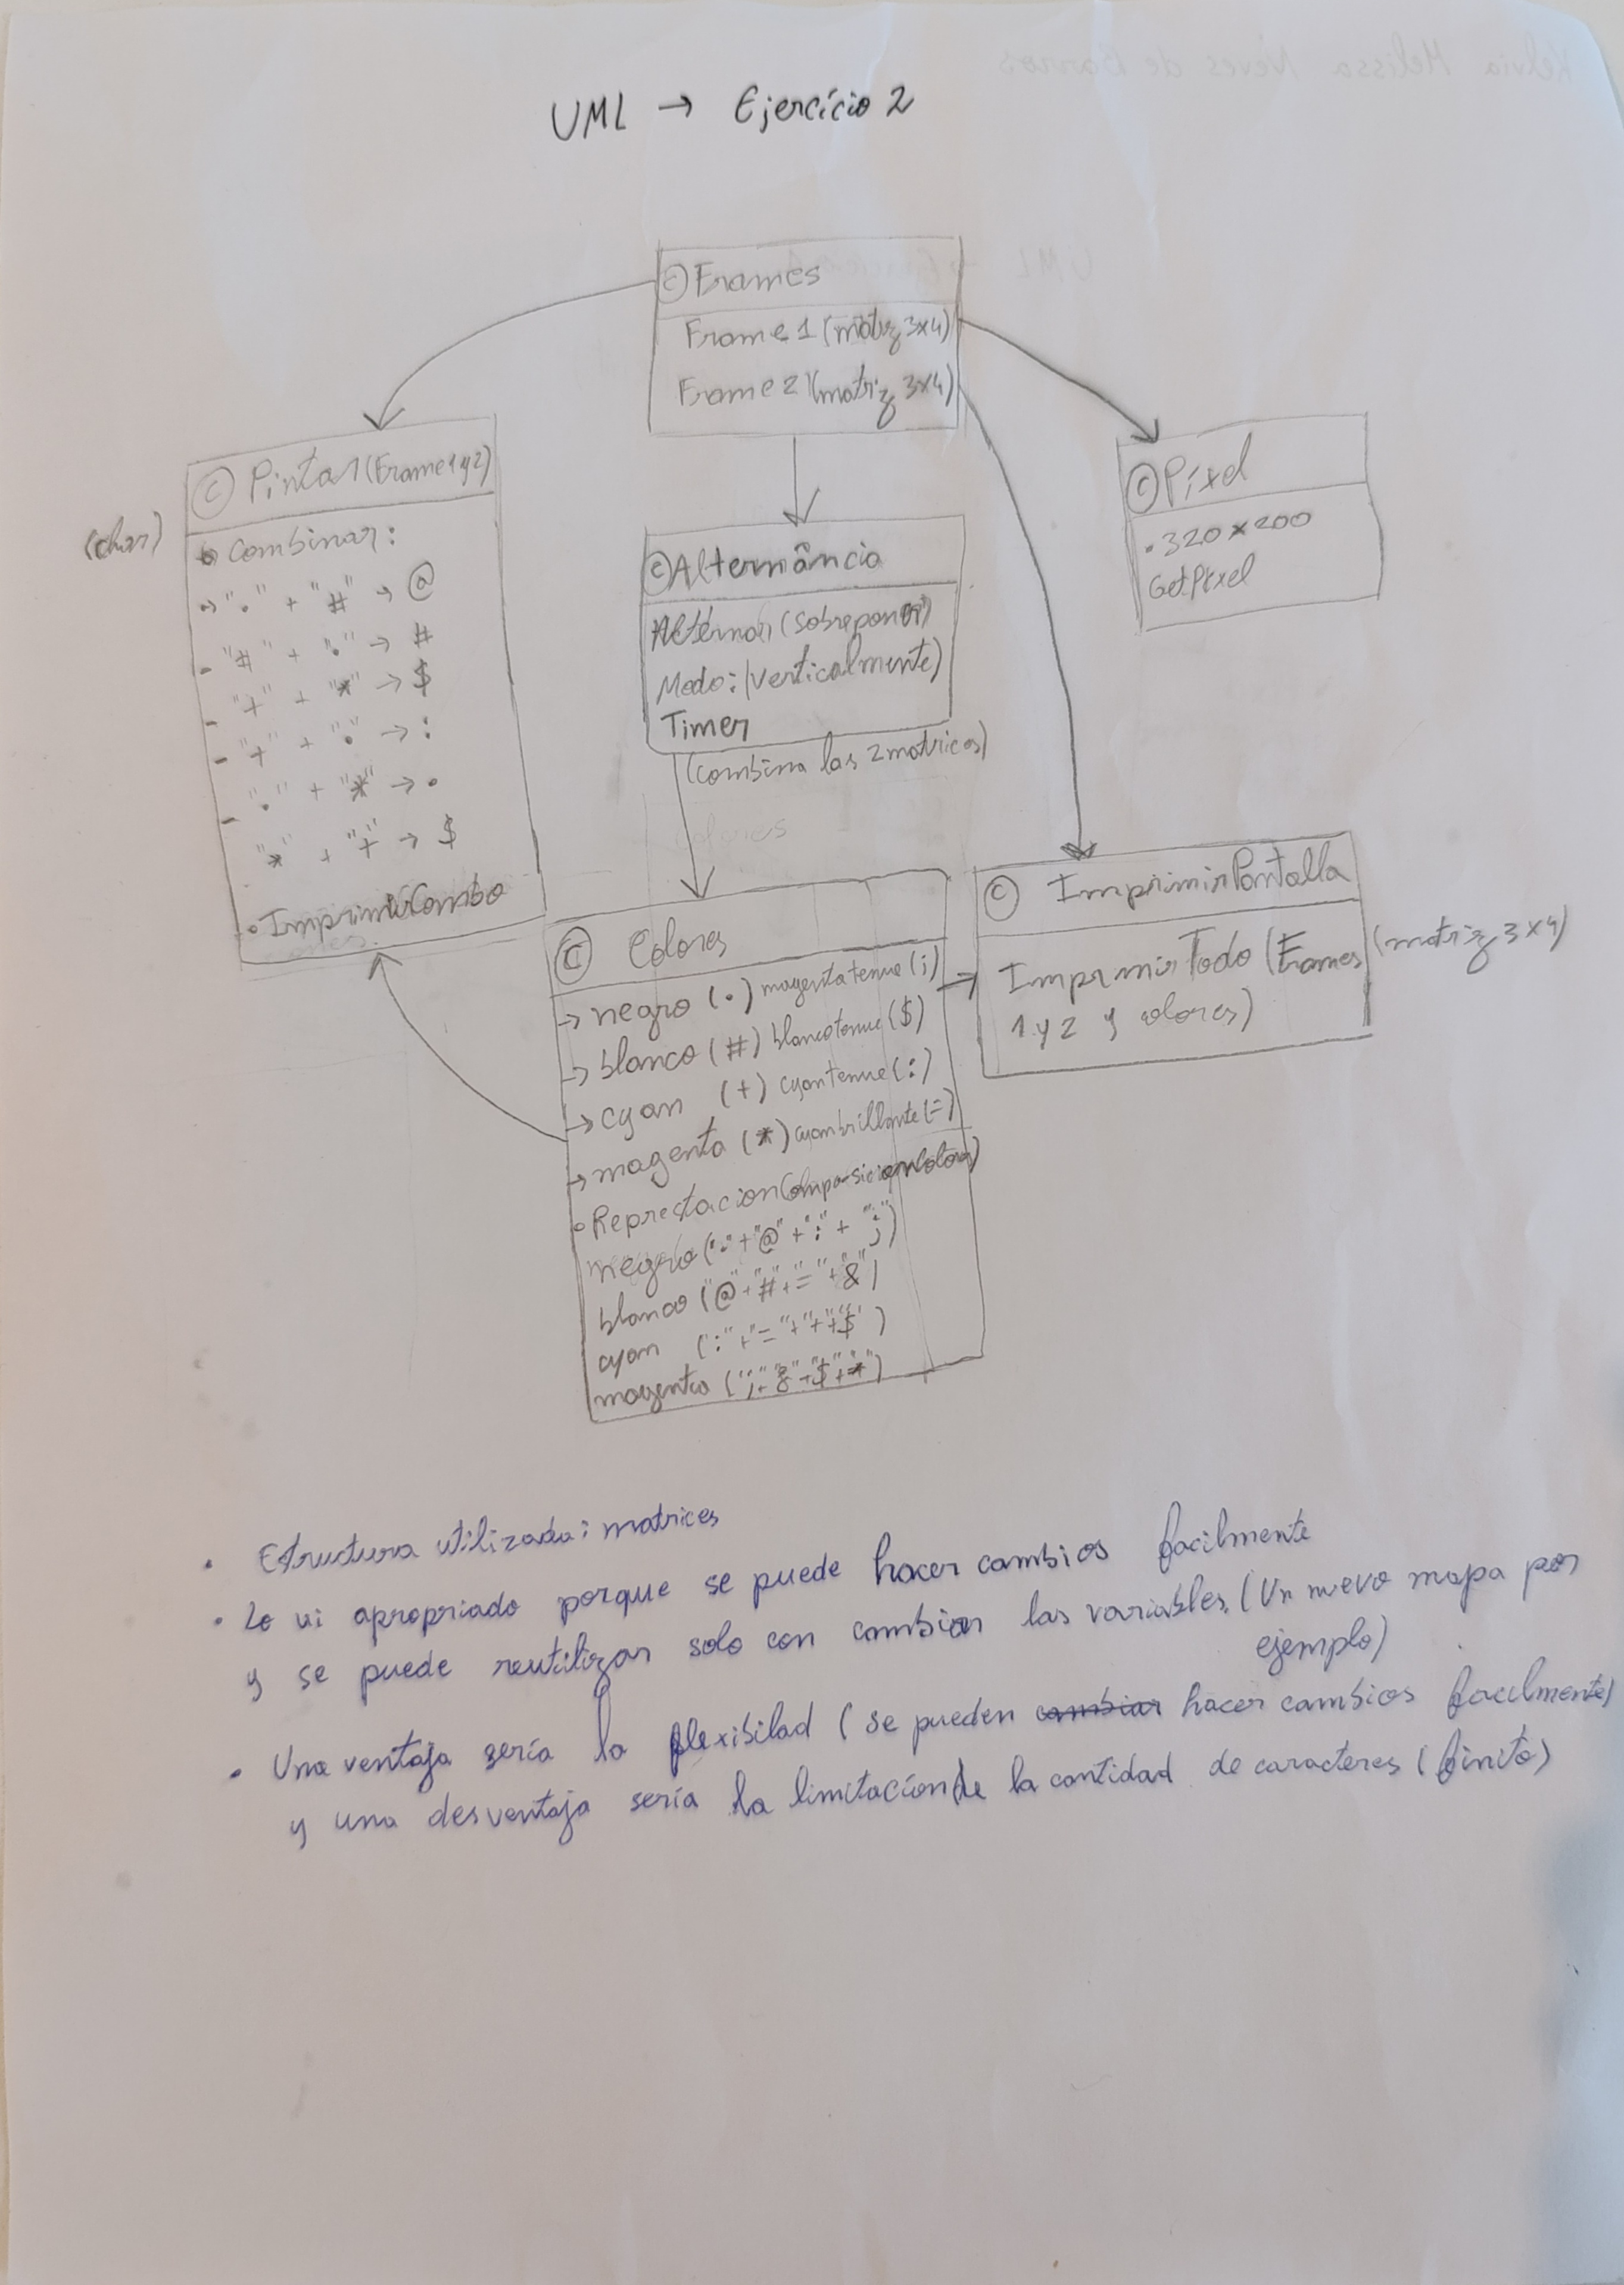 UML → Ejercício 2
© Frames
Frame 1 (matriz 3x4)
Frame 2 (matriz 3x4)
© Pintar (Frame 1 y 2)
(char)
Combinar:
→ "." + "#" → @
- "#" + "." → #
- "+" + "*" → $
- "+" + "." → :
- "." + "*" → .
"*" + "+" → $
• ImprimirCombo
© Alternância
Alternar (Sobreponer)
Modo: (verticalmente)
Timer
(combina las 2 matrices)
© Píxel
• 320 x 200
GetPixel
colores
© Colores
→ negro (.) magenta tenue (;)
→ blanco (#) blanco tenue ($)
→ cyan (+) cyan tenue (:)
→ magenta (*) cyan brillante (=)
negro ("." + "@" + ":" + ";")
blanco ("@" + "#" + "=" + "&")
cyan (":" + "=" + "+" + "$")
magenta (";" + "&" + "$" + "*")
© ImprimirPantalla
ImprimirTodo (Frames (matriz 3x4)
1 y 2 y colores)
• Estructura utilizada: matrices
• Lo vi apropriado porque se puede hacer cambios facilmente
y se puede reutilizar solo con cambiar las variables. (Un nuevo mapa por
ejemplo)
• Una ventaja sería la flexibilad (se pueden cambiar hacer cambios facilmente)
y una desventaja sería la limitación de la cantidad de caracteres (finito)